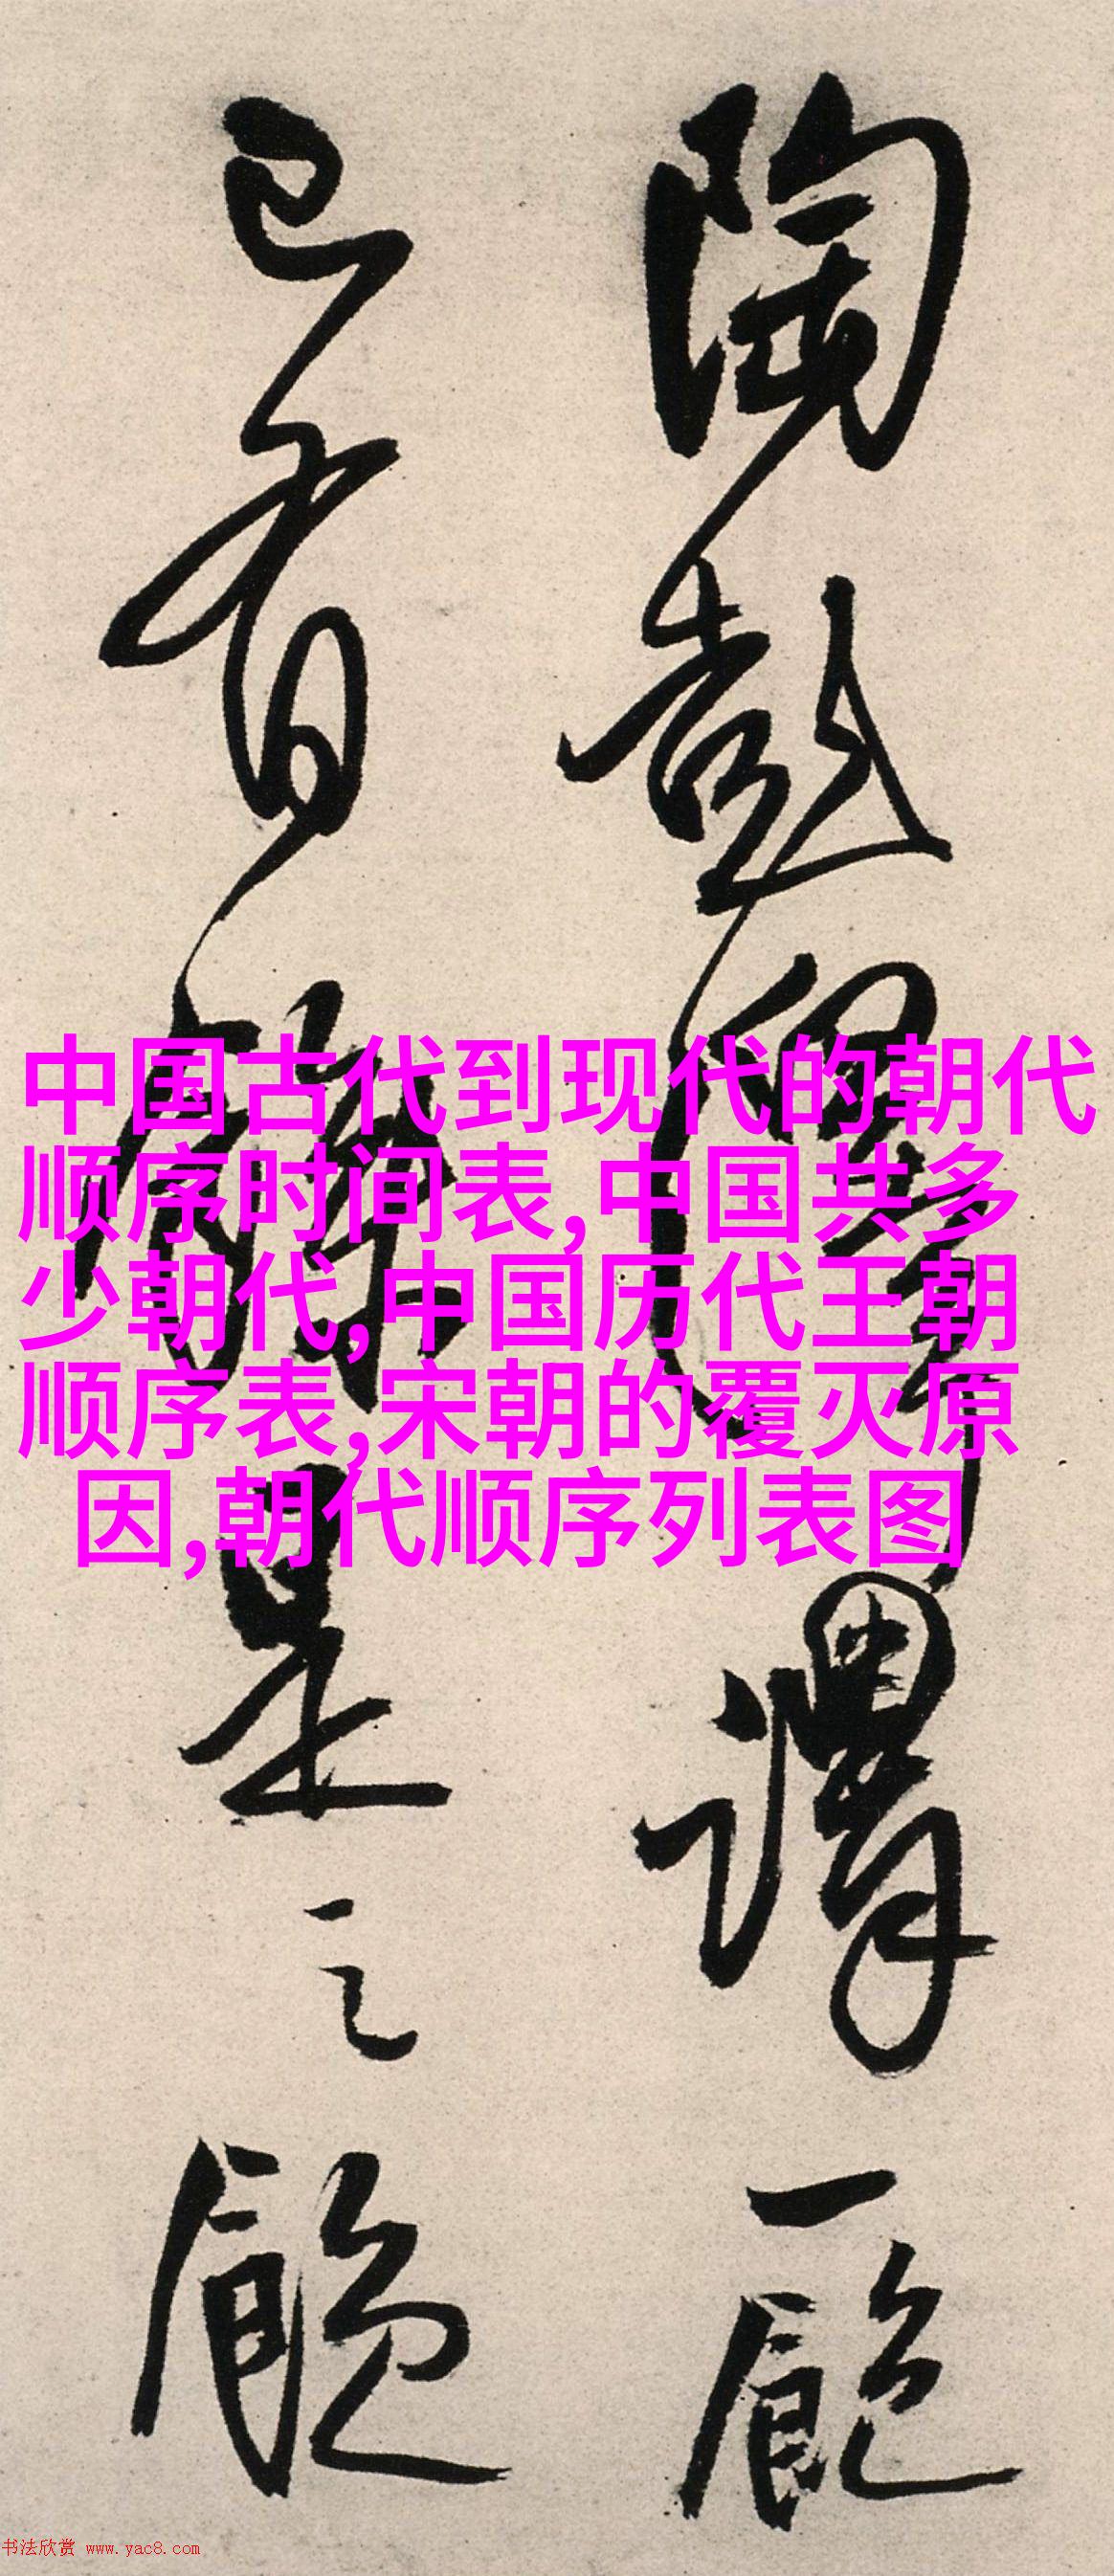 陶彭泽谓一
已有
是之
中国古代到现代的朝代
顺序时间表,中国共多
少朝代,中国历代王朝
顺序表,宋朝的覆灭原
因,朝代顺序列表图
书法欣赏 www.yac8.com